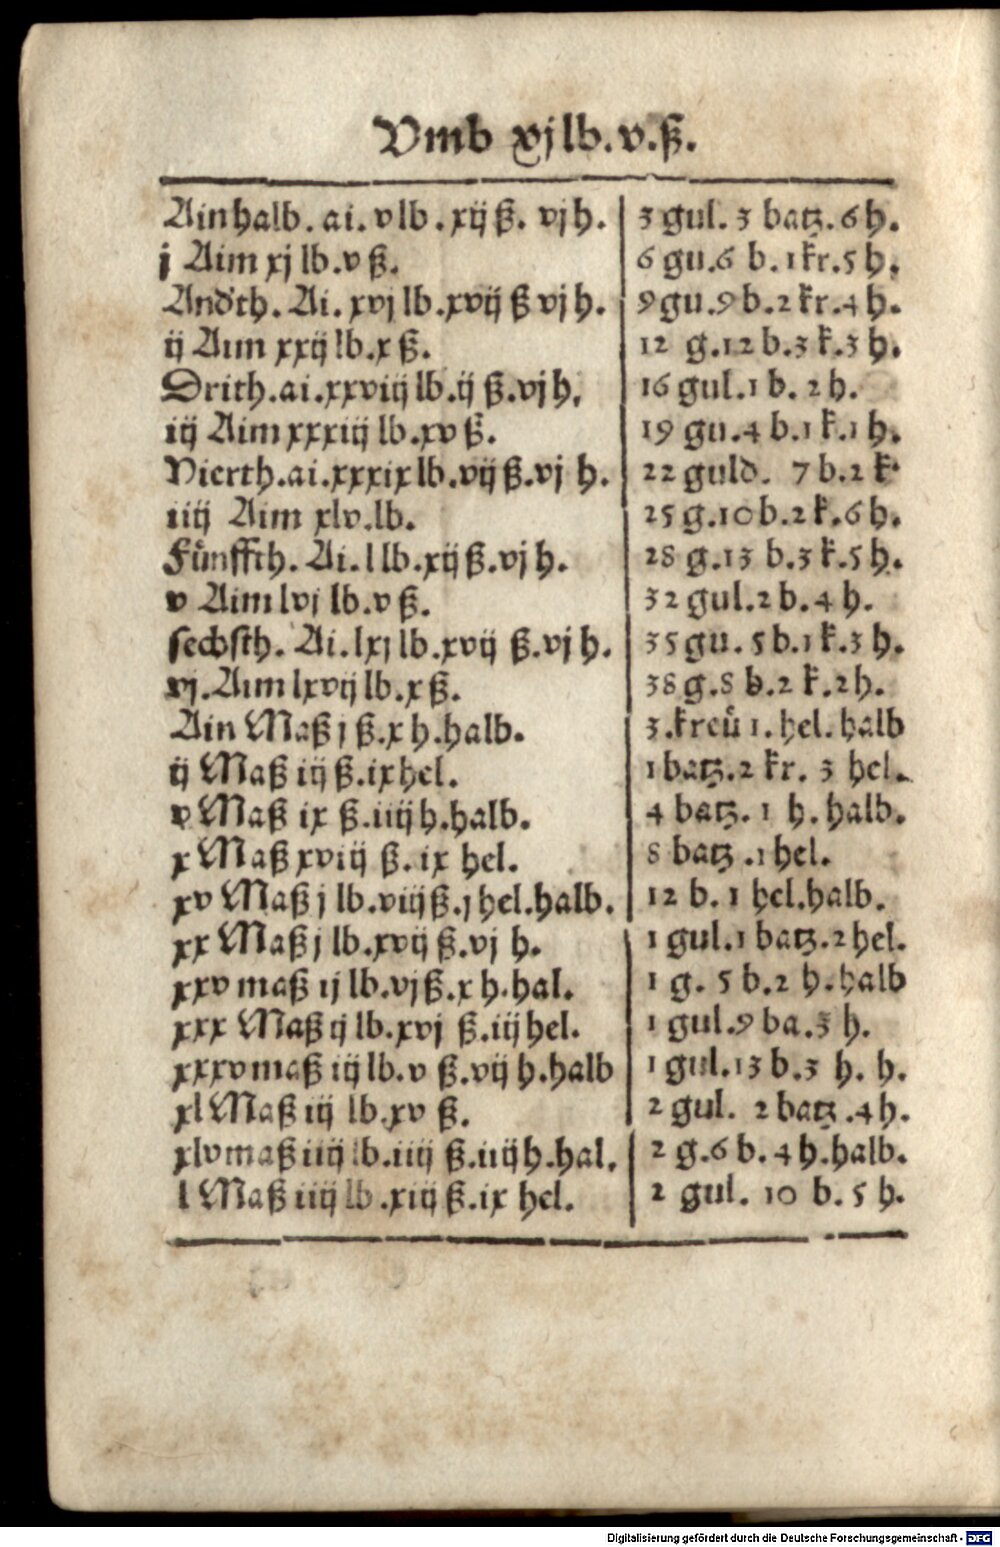 Vmb xj lb.v.ß.
Ain halb. ai. v lb. xij ß. vj h. 3 gul. 3 batz. 6 h.
j Aim xj lb. v ß. 6 gu. 6 b. 1 kr. 5 h.
And'th. Ai. xvj lb. xvij ß vj h. 9 gu. 9 b. 2 kr. 4 h.
ij Aim xxij lb. x ß. 12 g. 12 b. 3 k. 3 h.
Drith. ai. xxviij lb. ij ß. vj h. 16 gul. 1 b. 2 h.
iij Aim xxxiij lb. xv ß. 19 gu. 4 b. 1 k. 1 h.
Vierth. ai. xxxix lb. vij ß. vj h. 22 guld. 7 b. 2 k
iiij Aim xlv. lb. 25 g. 10 b. 2 k. 6 h.
Fünffth. Ai. l lb. xij ß. vj h. 28 g. 13 b. 3 k. 5 h.
v Aim lvj lb. v ß. 32 gul. 2 b. 4 h.
sechsth. Ai. lxj lb. xvij ß. vj h. 35 gu. 5 b. 1 k. 3 h.
vj. Aim lxvij lb. x ß. 38 g. 8 b. 2 k. 2 h.
Ain Maß j ß. x h. halb. 3. kreü 1. hel. halb
ij Maß iij ß. ix hel. 1 batz. 2 kr. 3 hel.
v Maß ix ß. iiij h. halb. 4 batz. 1 h. halb.
x Maß xviij ß. ix hel. 8 batz. 1 hel.
xv Maß j lb. viij ß. j hel. halb. 12 b. 1 hel. halb.
xx Maß j lb. xvij ß. vj h. 1 gul. 1 batz. 2 hel.
xxv maß ij lb. vj ß. x h. hal. 1 g. 5 b. 2 h. halb
xxx Maß ij lb. xvj ß. iij hel. 1 gul. 9 ba. 3 h.
xxxv maß iij lb. v ß. vij h. halb 1 gul. 13 b. 3 h. h.
xl Maß iij lb. xv ß. 2 gul. 2 batz. 4 h.
xlv maß iiij lb. iiij ß. iiij h. hal. 2 g. 6 b. 4 h. halb.
l Maß iiij lb. xiij ß. ix hel. 2 gul. 10 b. 5 h.
Digitalisierung gefördert durch die Deutsche Forschungsgemeinschaft - DFG